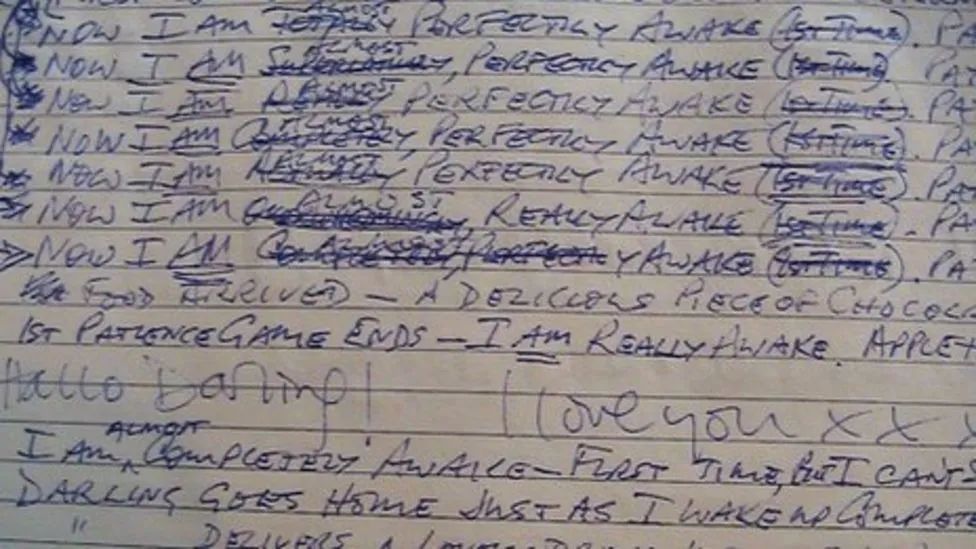 NOW I AM TOTALLY ALMOST PERFECTLY AWAKE (1ST TIME). PA
NOW I AM SUPERLATIVELY ALMOST, PERFECTLY AWAKE (1ST TIME). PAT
NOW I AM ALMOST PERFECTLY AWAKE (1ST TIME). PAT
NOW I AM COMPLETELY ALMOST, PERFECTLY AWAKE (1ST TIME). PA
NOW I AM ALMOST PERFECTLY AWAKE (1ST TIME). PAT
NOW I AM ALMOST, REALLY AWAKE (1ST TIME). PA
NOW I AM PERFECTLY AWAKE (1ST TIME). PAT
FOOD ARRIVED – A DELICIOUS PIECE OF CHOCOL
1ST PATIENCE GAME ENDS – I AM REALLY AWAKE. APPLET
Hallo Darling! I love you x x x
I AM ALMOST COMPLETELY AWAKE – FIRST TIME, BUT I CAN'T
DARLING GOES HOME JUST AS I WAKE UP COMPLETE
" DELIVERS A